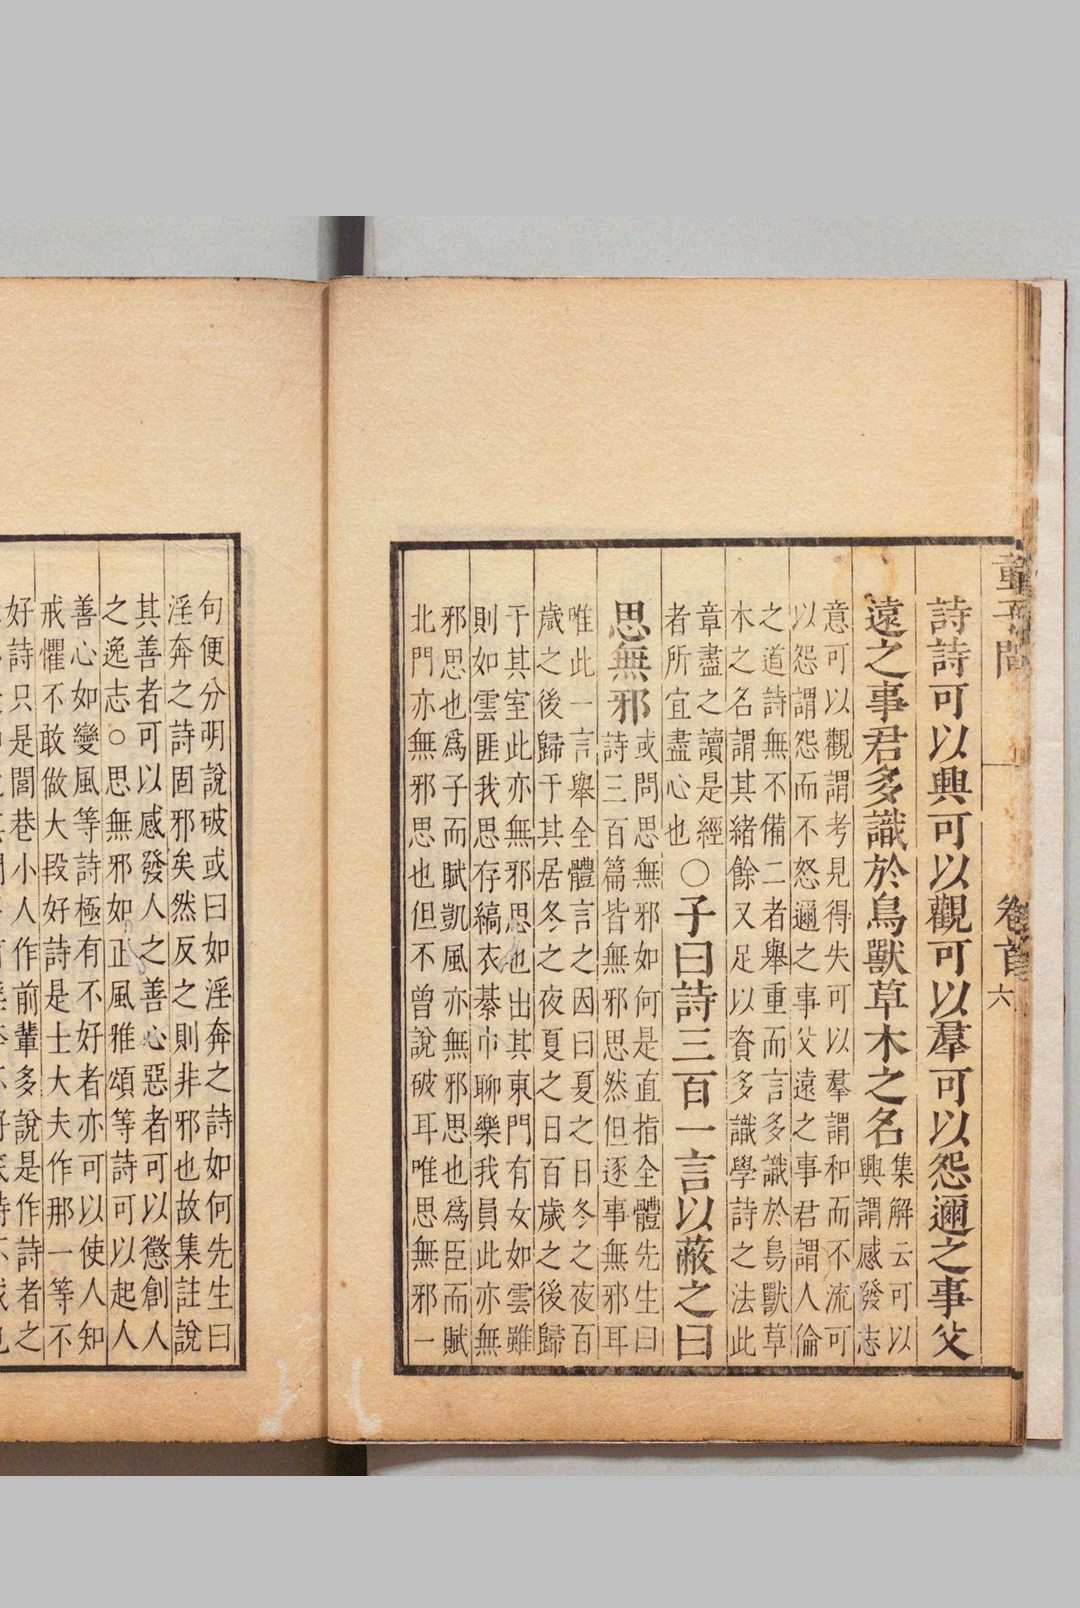 童子問
卷首
六
詩詩可以興可以觀可以羣可以怨邇之事父
遠之事君多識於鳥獸草木之名
集解云可以
興謂感發志
意可以觀謂考見得失可以羣謂和而不流可
以怨謂怨而不怒邇之事父遠之事君謂人倫
之道詩無不備二者舉重而言多識於鳥獸草
木之名謂其緒餘又足以資多識學詩之法此
章盡之讀是經
者所宜盡心也
○子曰詩三百一言以蔽之曰
思無邪
或問思無邪如何是直指全體先生曰
詩三百篇皆無邪思然但逐事無邪耳
唯此一言舉全體言之因曰夏之日冬之夜百
歲之後歸于其居冬之夜夏之日百歲之後歸
于其室此亦無邪思也出其東門有女如雲雖
則如雲匪我思存縞衣綦巾聊樂我員此亦無
邪思也爲子而賦凱風亦無邪思也爲臣而賦
北門亦無邪思也但不曾說破耳唯思無邪一
句便分明說破或曰如淫奔之詩如何先生曰
淫奔之詩固邪矣然反之則非邪也故集註說
其善者可以感發人之善心惡者可以懲創人
之逸志○思無邪如正風雅頌等詩可以起人
善心如變風等詩極有不好者亦可以使人知
戒懼不敢做大段好詩是士大夫作那一等不
好詩只是閭巷小人作前輩多說是作詩者之